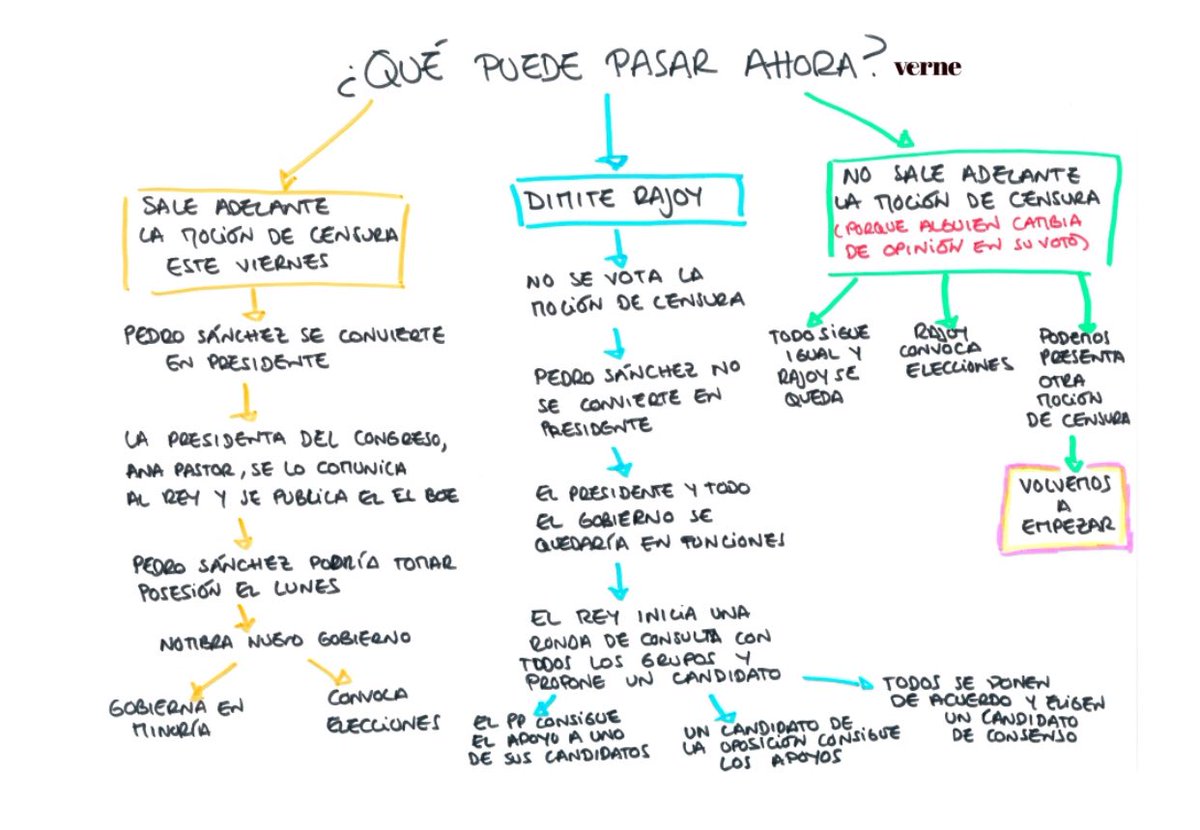 ¿QUÉ PUEDE PASAR AHORA? verne
SALE ADELANTE
LA MOCIÓN DE CENSURA
ESTE VIERNES
PEDRO SÁNCHEZ SE CONVIERTE
EN PRESIDENTE
LA PRESIDENTA DEL CONGRESO,
ANA PASTOR, SE LO COMUNICA
AL REY Y SE PUBLICA EL EL BOE
PEDRO SÁNCHEZ PODRÍA TOMAR
POSESIÓN EL LUNES
NOMBRA NUEVO GOBIERNO
GOBIERNA EN
MINORÍA
CONVOCA
ELECCIONES
DIMITE RAJOY
NO SE VOTA LA
MOCIÓN DE CENSURA
PEDRO SÁNCHEZ NO
SE CONVIERTE EN
PRESIDENTE
EL PRESIDENTE Y TODO
EL GOBIERNO SE
QUEDARÍA EN FUNCIONES
EL REY INICIA UNA
RONDA DE CONSULTA CON
TODOS LOS GRUPOS Y
PROPONE UN CANDIDATO
EL PP CONSIGUE
EL APOYO A UNO
DE SUS CANDIDATOS
UN CANDIDATO DE
LA OPOSICIÓN CONSIGUE
LOS APOYOS
TODOS SE PONEN
DE ACUERDO Y ELIGEN
UN CANDIDATO
DE CONSENSO
NO SALE ADELANTE
LA MOCIÓN DE CENSURA
(PORQUE ALGUIEN CAMBIA
DE OPINIÓN EN SU VOTO)
TODO SIGUE
IGUAL Y
RAJOY SE
QUEDA
RAJOY
CONVOCA
ELECCIONES
PODEMOS
PRESENTA
OTRA
MOCIÓN
DE CENSURA
VOLVEMOS
A
EMPEZAR